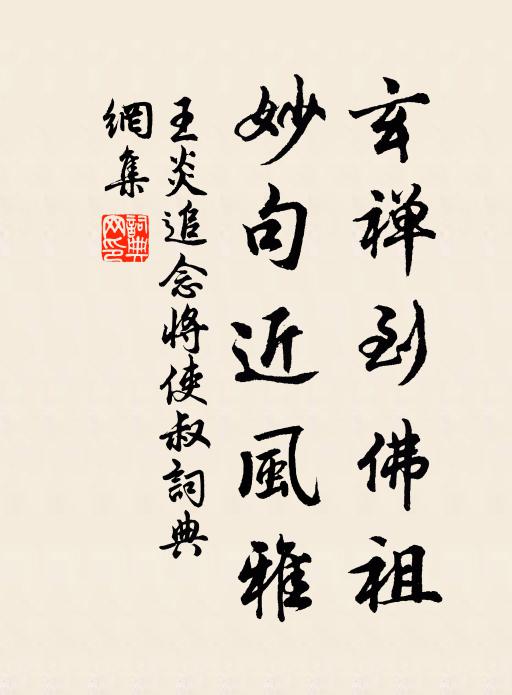 玄禅到佛祖
妙句近風雅
王炎追念將使叔詞典
網集
詞典
网印